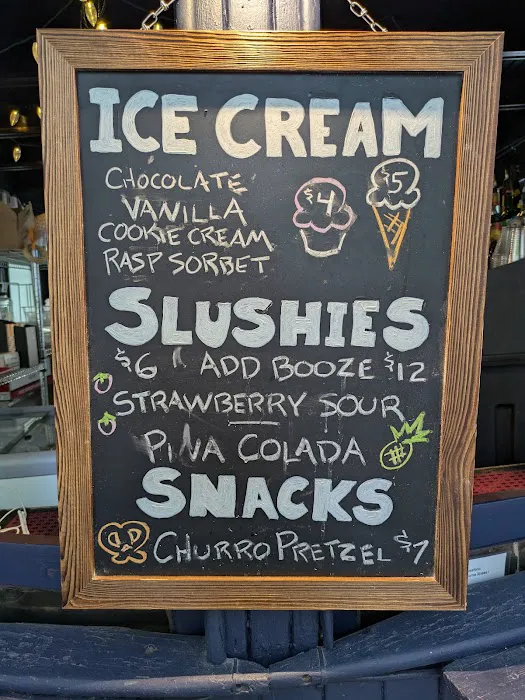 ICE CREAM
CHOCOLATE
VANILLA
COOKIE CREAM
RASP SORBET
$4
$5
SLUSHIES
$6 ADD BOOZE $12
STRAWBERRY SOUR
PINA COLADA
SNACKS
CHURRO PRETZEL $7